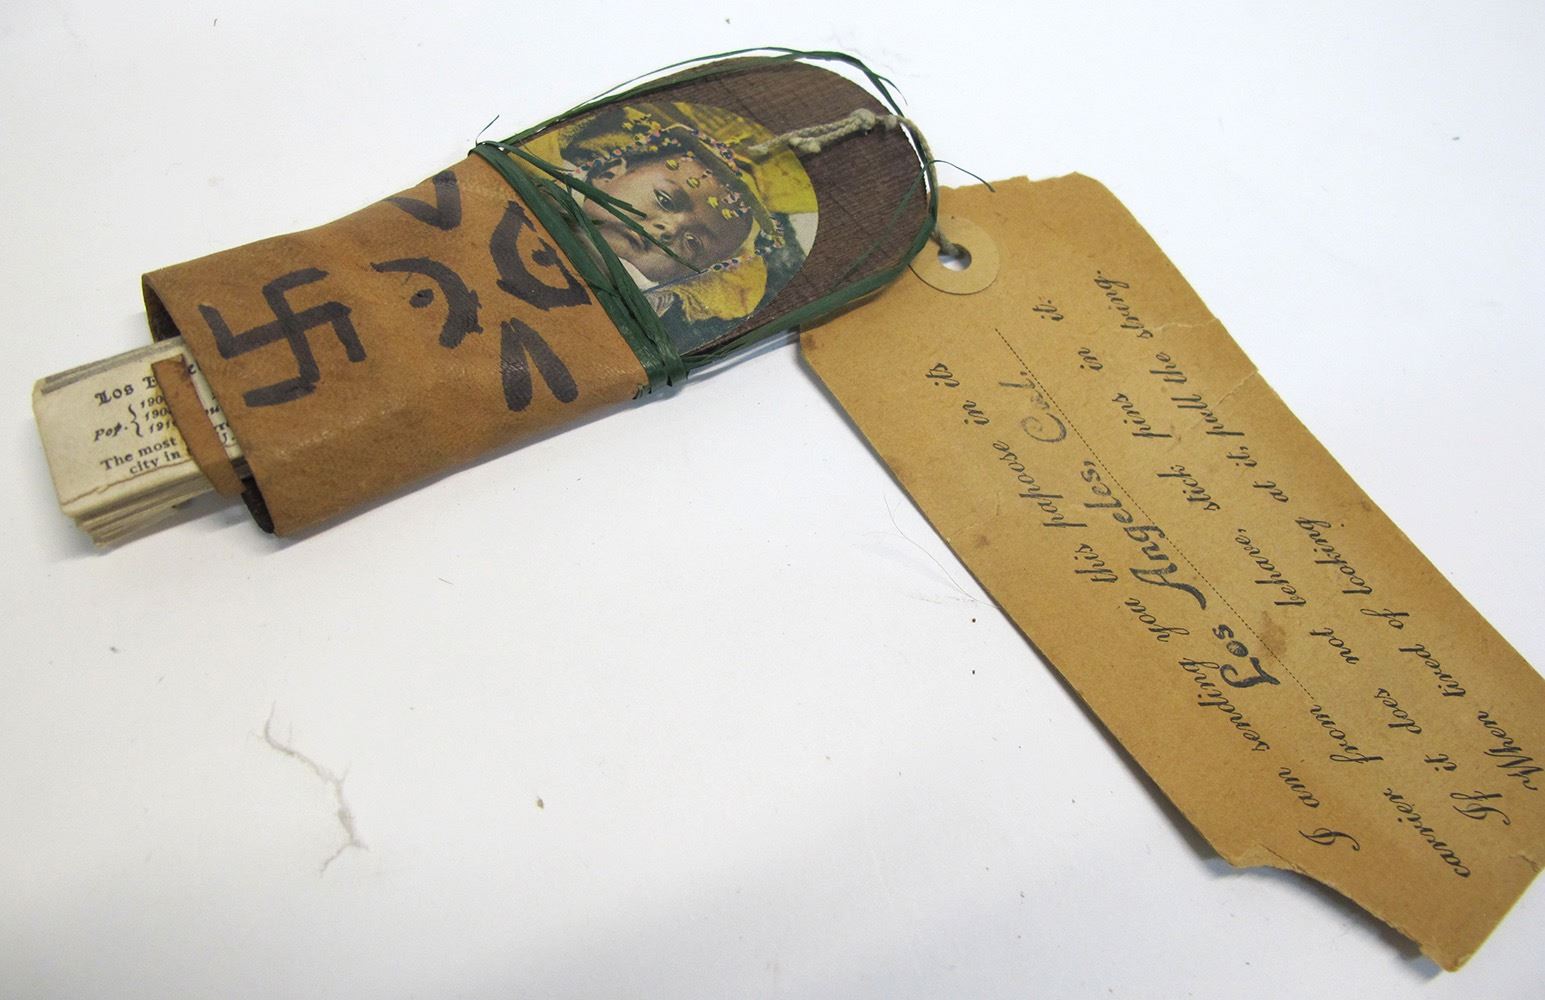 Los
Pop. { 190
190
191
The most
city in
I am sending you this papoose in its
carrier from Los Angeles, Cal.
If it does not behave, stick pins in it.
When tired of looking at it, pull the string.